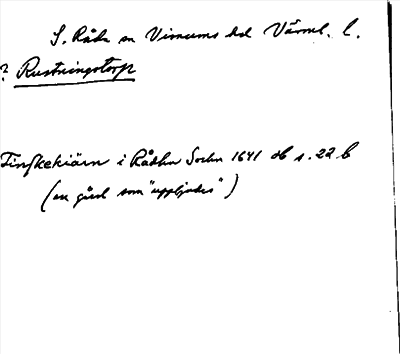 S. Råda sn Visnums hd Värml. l.
? Rustningstorp
Finskekiärn i Rådha Sochn 1641 db s. 22 b
(en gård som "uppbjudes")